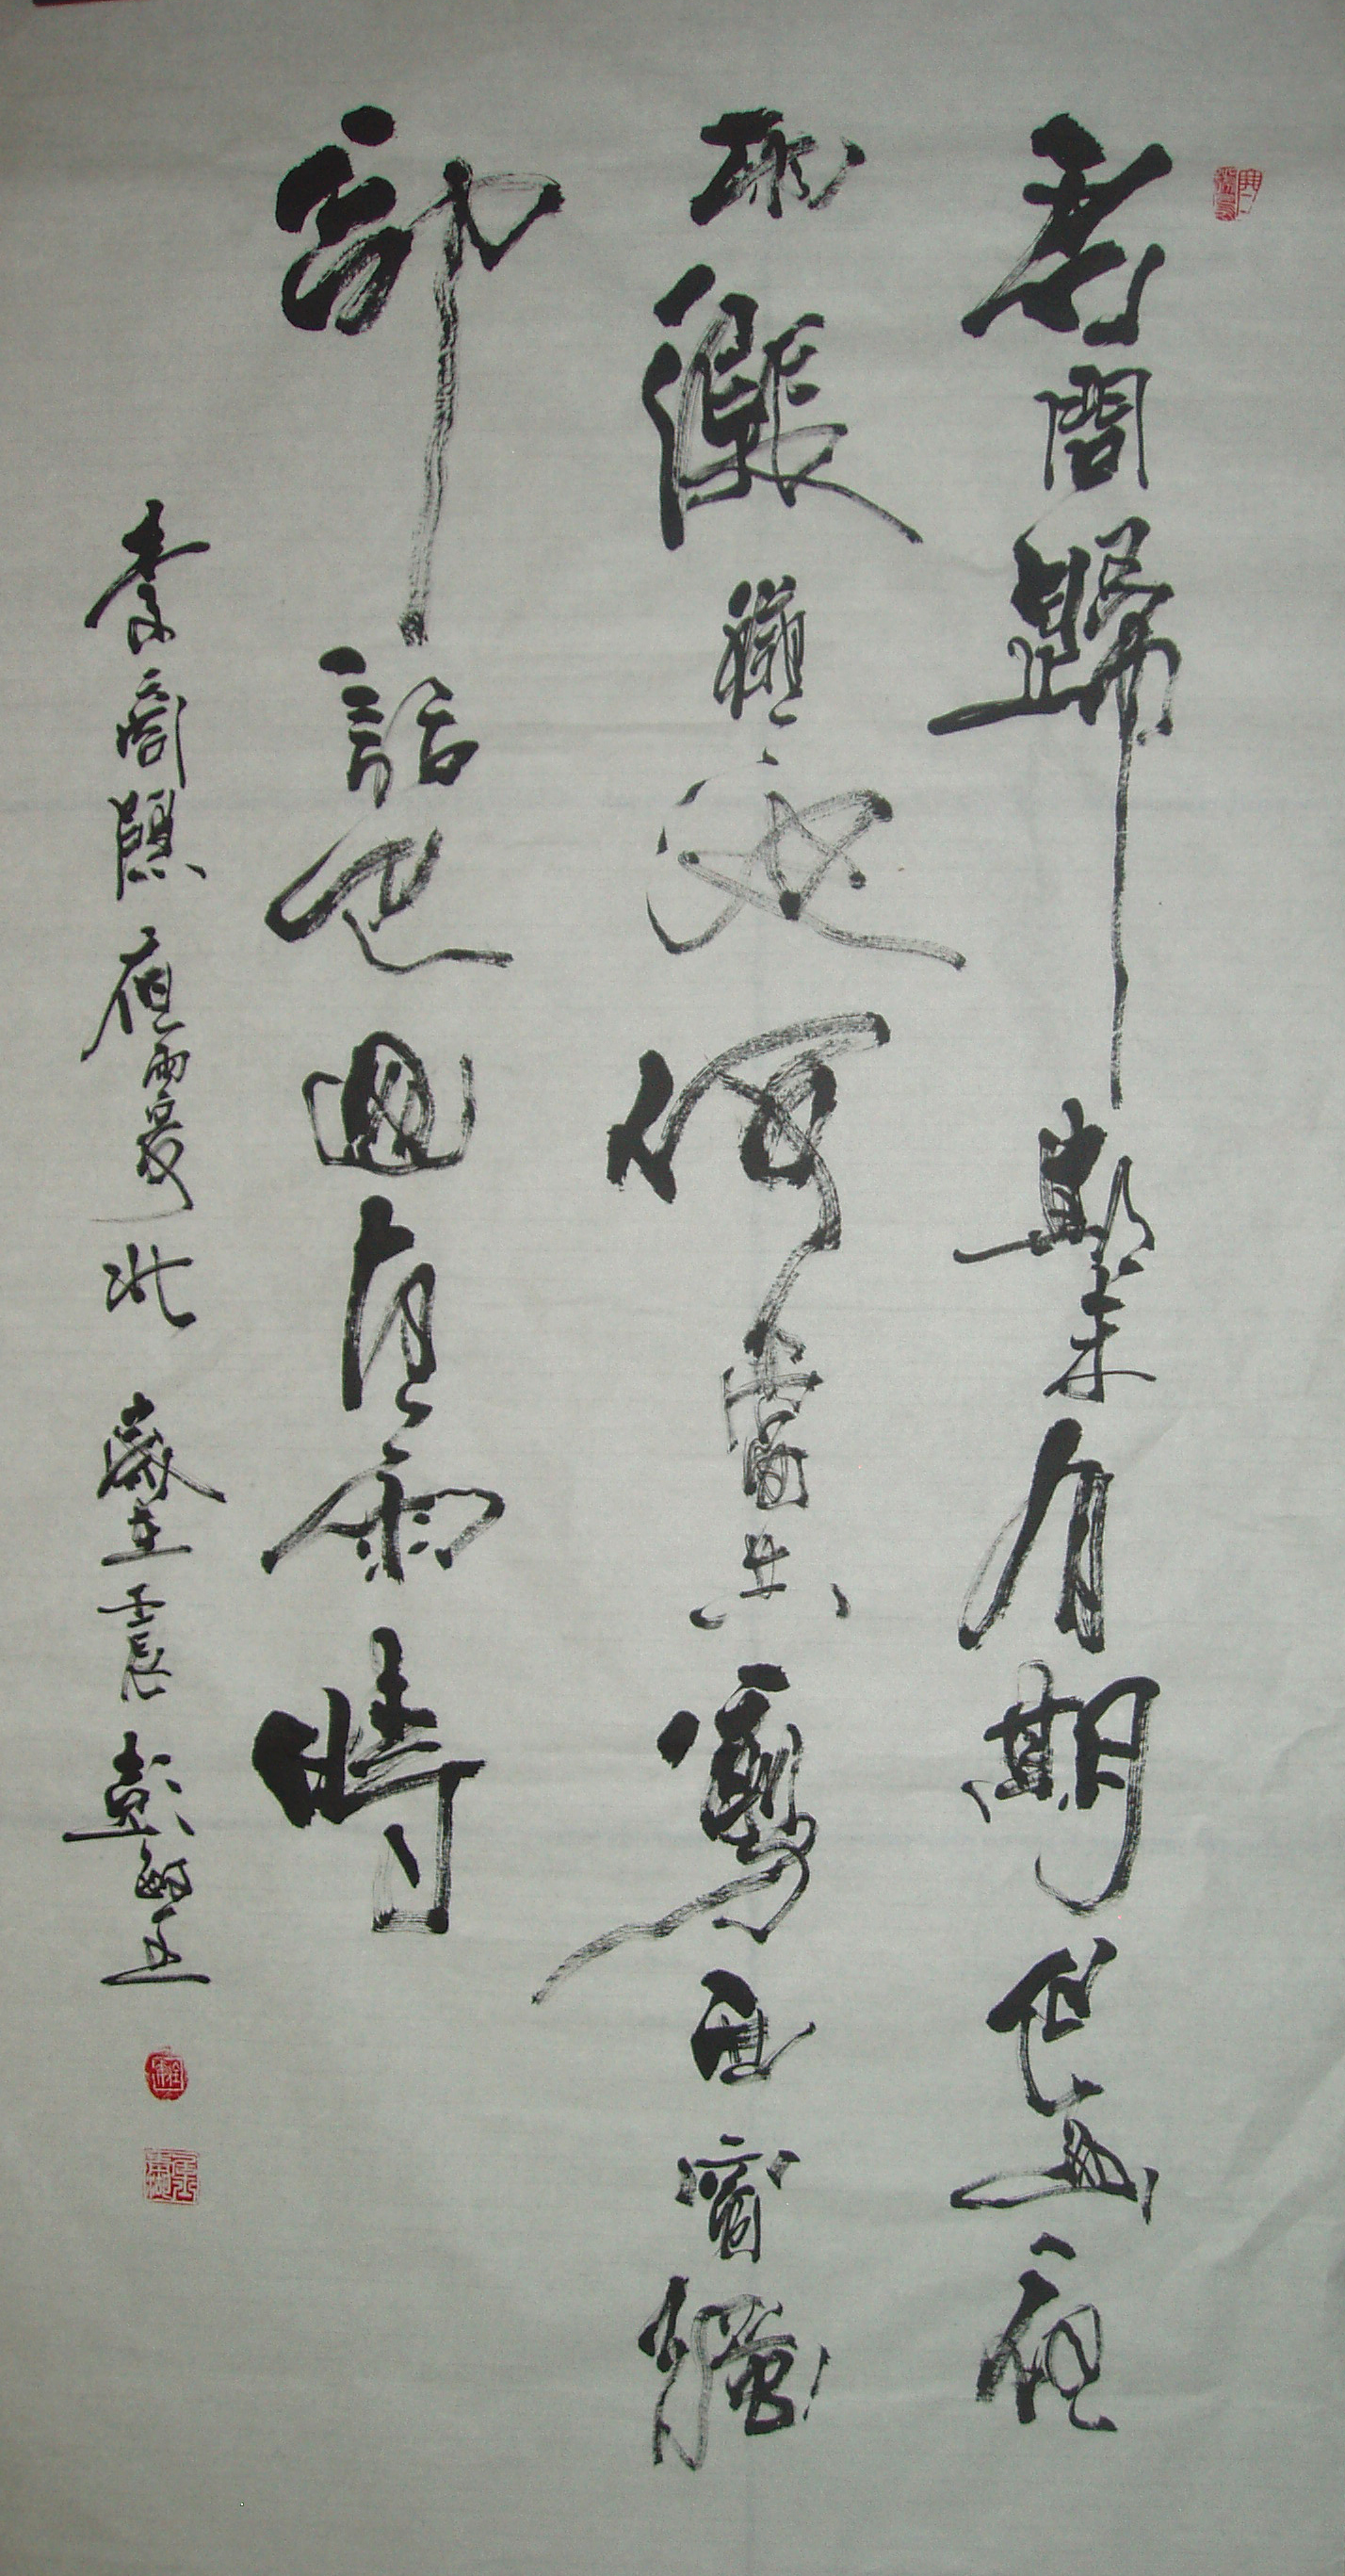 君問歸期未有期巴山夜
雨漲秋池何當共剪西窗燭
卻話巴山夜雨時
李商隱夜雨寄北 歲在壬辰 彭